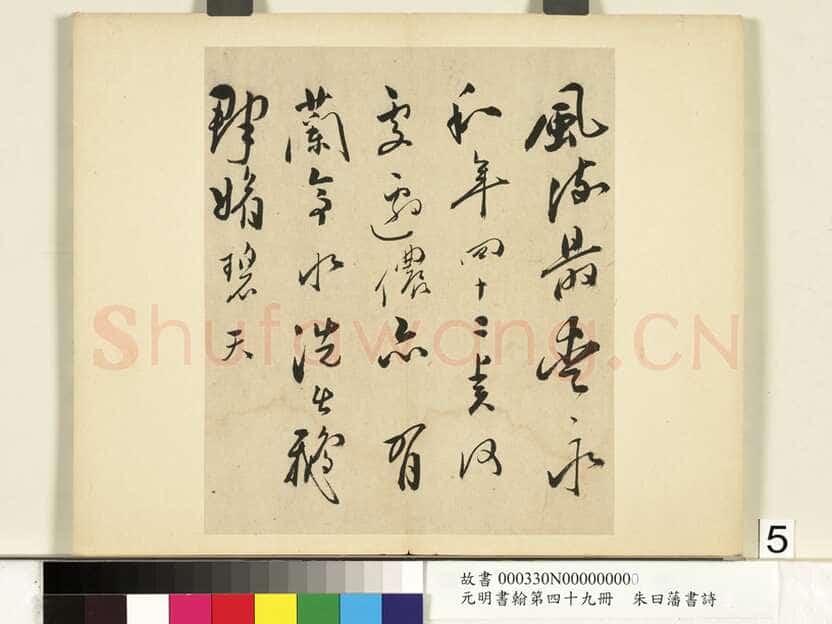 風流最永
和年四十二賢何
處邊儂亦有
蘭亭水洗出鵝
群媚碧天
Shufawang.CN
5
故書 000330N000000000
元明書翰第四十九冊 朱曰藩書詩